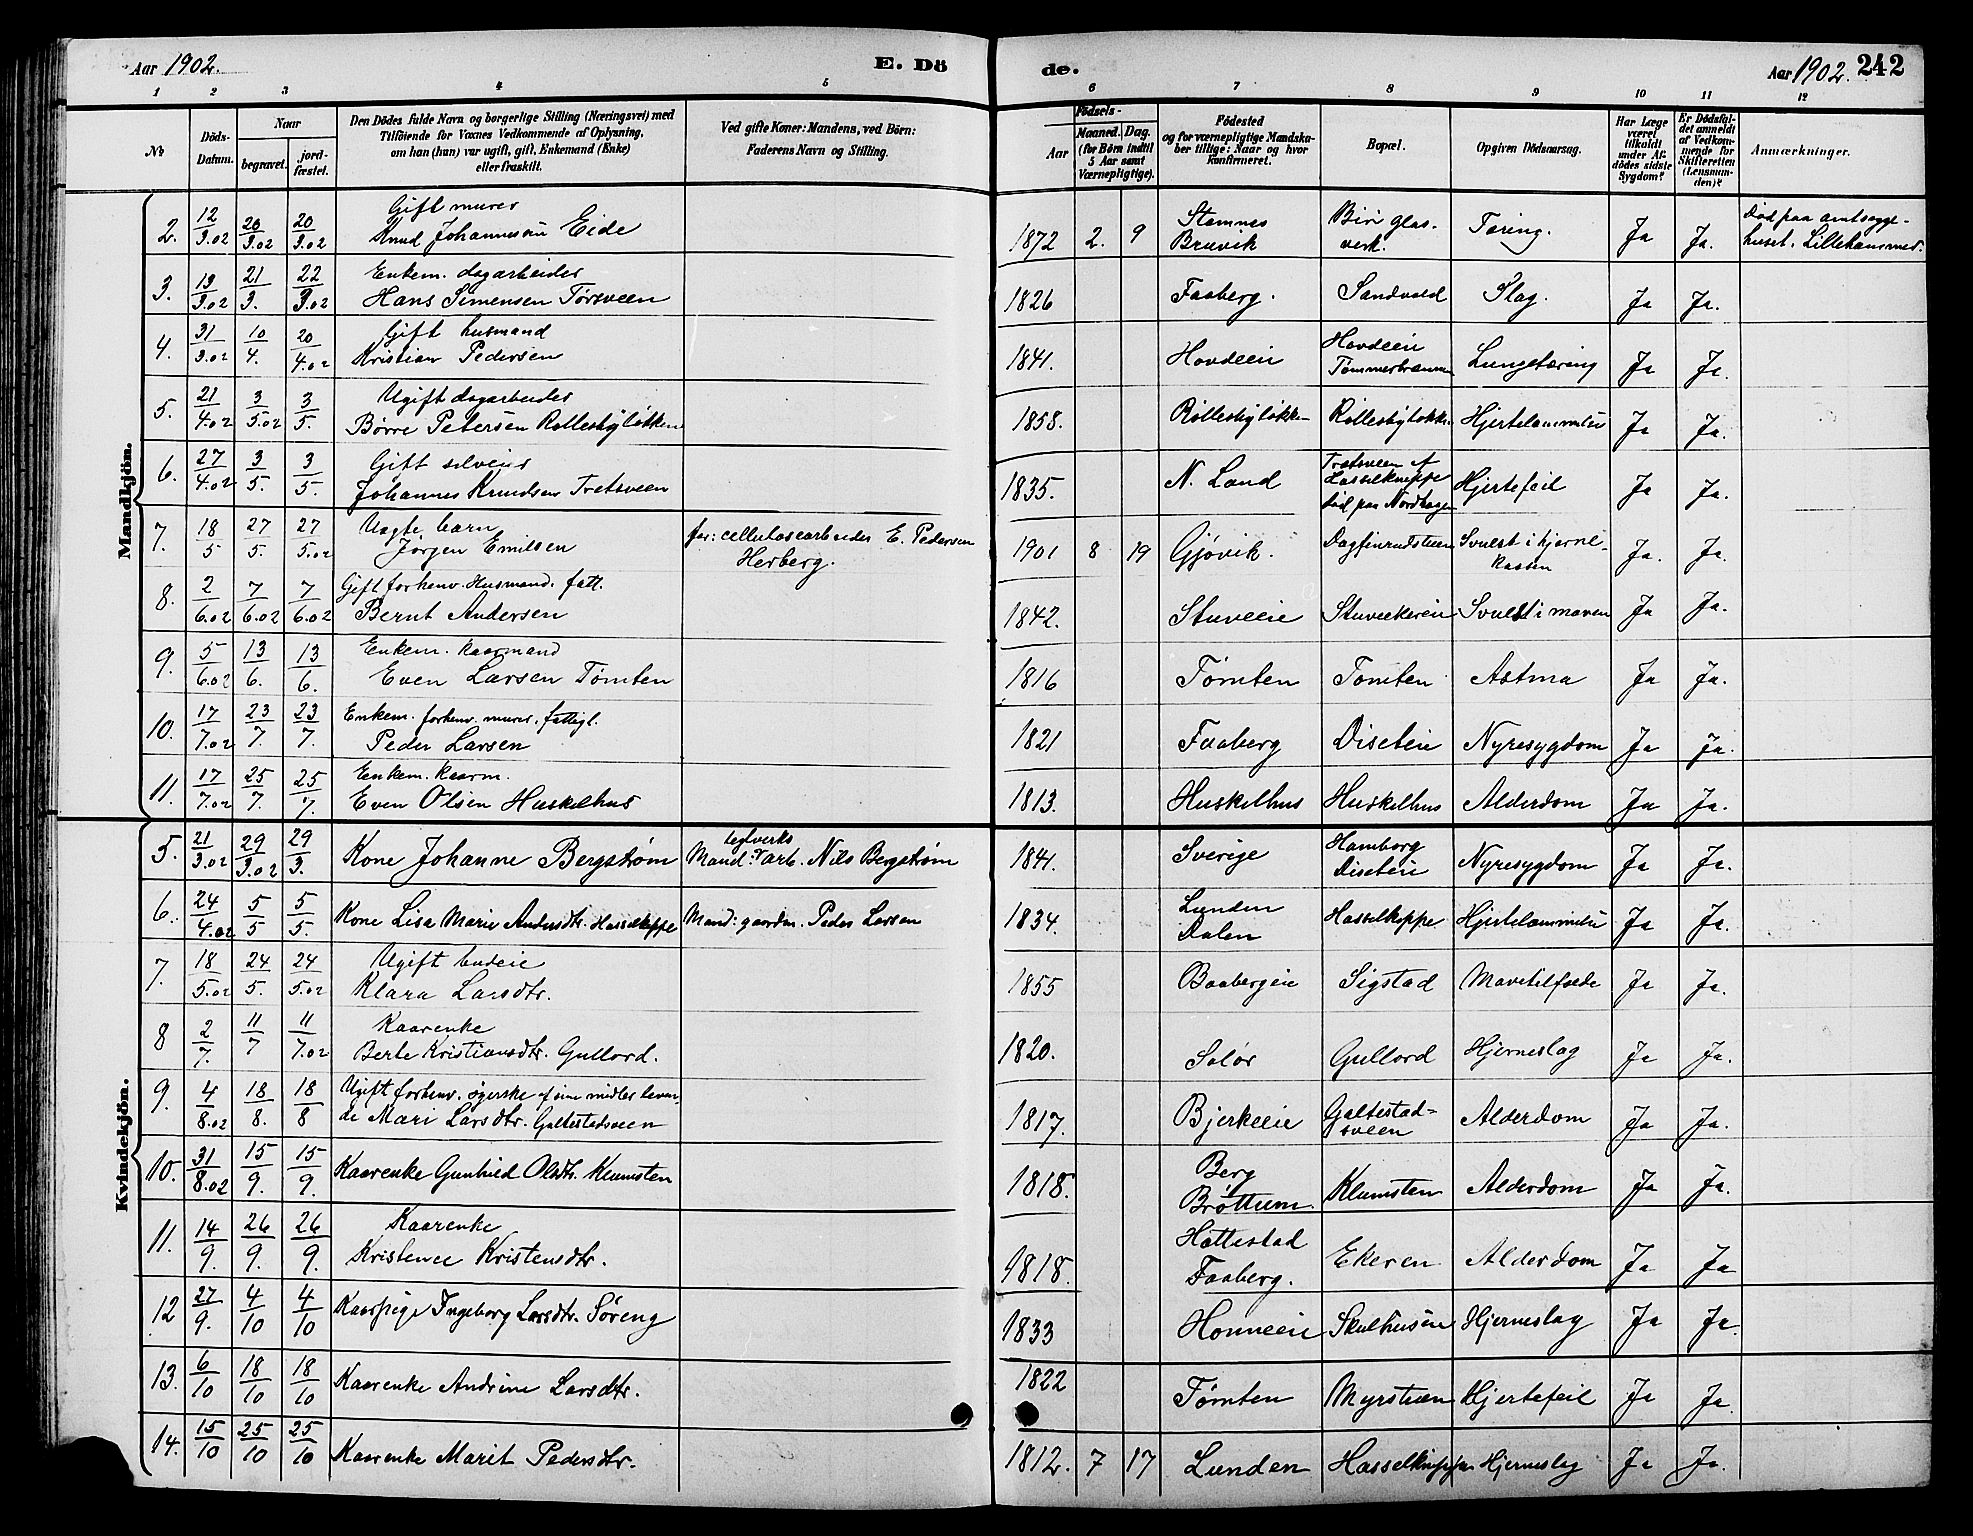 Aar 1902.
E. Dö
de.
Aar 1902. 242
1 2 3 4 5 6 7 8 9 10 11 12
No
Döds-
Datum.
Naar
begravet.
jord-
fæstet.
Den Dödes fulde Navn og borgerlige Stilling (Næringsvei) med
Tilföiende for Voxnes Vedkommende af Oplysning,
om han (hun) var ugift, gift, Enkemand (Enke)
eller fraskilt.
Ved gifte Koner: Mandens, ved Börn:
Faderens Navn og Stilling.
Födsels-
Aar
Maaned. Dag.
(for Börn indtil
5 Aar samt
Værnepligtige).
Födested
og for værnepligtige Mandska-
ber tillige: Naar og hvor
konfirmeret.
Bopæl.
Opgiven Dödsaarsag.
Har Læge
været
tilkaldt
under Af-
dödes sidste
Sygdom?
Er Dödsfal-
det anmeldt
af Vedkom-
mende for
Skifteretten
(Lensman-
den)?
Anmærkninger.
Mandkjön.
2. 12/3.02 20/3.02 20/3.02 Gift murer
Knud Johannessen Eide
1872 2. 9 Stamnes
Bruvik
Biri glas-
verk.
Tæring. Ja Ja.
Død paa amtssyge-
huset i Lillehammer.
3. 13/3.02 21/3. 22/3.02 Enkem. dagarbeider
Hans Simensen Tørsveen
1826 Faaberg. Sandvold Slag. Ja Ja.
4. 31/3.02 10/4. 20/4.02 Gift husmand
Kristian Pedersen
1841. Hovdeeie Hovdeeie
Lungetæring Ja Ja.
5. 21/4.02 3/5.02 3/5. Ugift dagarbeider
Børre Petersen Rolleshyløkken
1858. Ja Ja.
6. 27/4.02 3/5. 3/5. Gift selveier
Johannes Knudsen Tretsveen
1835. N. Land Tretsveen af
død paa Nordhagen
Hjertefeil Ja Ja.
7. 18/5 27/5. 27/5.02 Uægte barn
Jørgen Emilsen
far: cellulosearbeider E. Pedersen
Herberg.
1901 8 19 Gjøvik. Dagfinrudstuen Svulst i hjerne-
kassen
Ja. Ja.
8. 2/6.02 7/6.02 7/6.02 Gift forhenv. Husmand. fatt.
Bernt Andersen
1842. Stuveeie Svulst i maven Ja Ja.
9. 5/6.02 13/6. 13/6. Enkem. kaarmand
Even Larsen Tømten
1816 Tømten Tomten Astma Ja Ja.
10. 17/7.02 23/7. 23/7. Enkem. forhenv. murer, fattigl.
Peder Larsen
1821 Faaberg Diseteie Nyresygdom Ja Ja.
11. 17/7.02 25/7. 25/7. Enkem. kaarm.
Even Olsen Huskelhus
1813. Huskelhus Huskelhus Alderdom Ja Ja.
Kvindekjön.
5. 21/3.02 29/3.02 29/3. Kone Johanne Bergstrøm
teglverks
Mand: arb. Nils Bergstrøm
1841. Sverige Hamborg
Diseteie
Nyresygdom Ja Ja.
6. 24/4.02 5/5 5/5. Kone Lisa Marie Andersdtr. Hasselkeppe Mand: gaardm. Peder Larsen
1834. Lunden
Dalen
Hasselkeppe Ja Ja.
7. 18/5.02 24/5. 24/5.02 Ugift budeie
Klara Larsdtr.
1855 Baabergeie Sigstad Mavetilfælde Ja Ja.
8 2/7. 11/7 11/7.02 Kaarenke
Berte Kristiansdtr. Gullord.
1820. Solør Gullord Hjerneslag Ja Ja.
9. 4/8.02 18/8. 18/8 Ugift forhenv. syerske af sine midler leven-
de Mari Larsdtr. Galtestadsveen
1817. Bjerkeeie Galtestad-
sveen
Alderdom Ja Ja.
10. 31/8.02 15/9. 15/9. Kaarenke Gunhild Olsdtr. Klumsten
1818. Berg
Brøttum
Klumsten Alderdom Ja Ja.
11. 14/9. 26/9. 26/9. Kaarenke
Kristence Kristensdtr.
1818. Hattestad
Faaberg.
Ekeren Alderdom Ja Ja
12 27/9. 4/10 4/10 Kaarpige Ingeborg Larsdtr. Søreng
1833 Honneeie Skulhusene Hjerneslag Ja Ja.
13. 6/10 18/10 18/10 Kaarenke Andrine Larsdtr.
1822 Tømten Myrstuen Hjertefeil Ja Ja.
14. 15/10 25/10 25/10 Kaarenke Marit Pedersdtr.
1812. 7 17 Lunden Hasselknippen Hjerneslag Ja Ja.